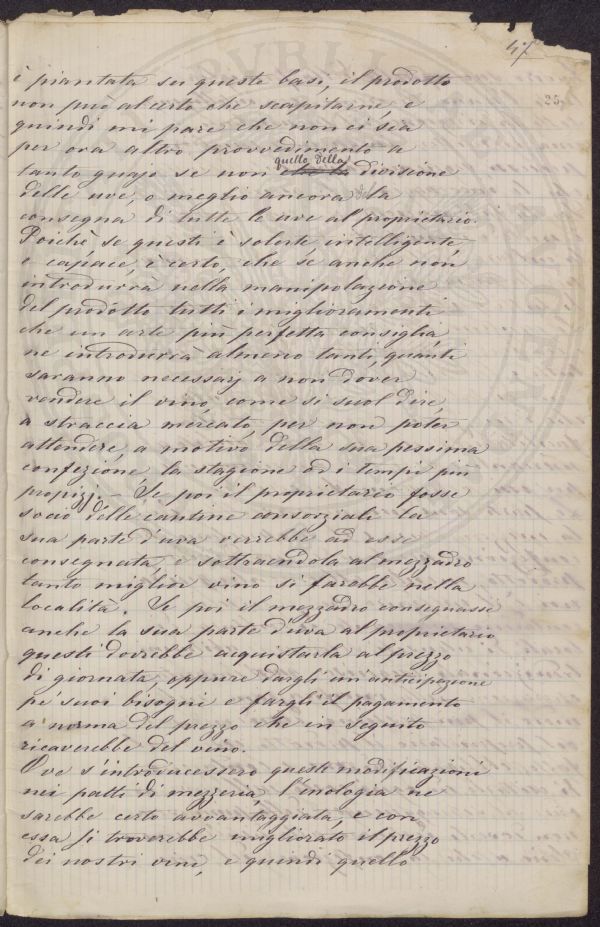 47
25
è piantata su queste basi, il prodotto
non può al certo che scapitarne, e
quindi mi pare che non ci sia
per ora altro provvedimento a
quello della
tanto guajo se non che la divisione
delle uve, o meglio ancora la
consegna di tutte le uve al proprietario.
Poichè se questi è solerte intelligente,
e capace, è certo, che se anche non
introdurrà nella manipolazione
del prodotto tutti i miglioramenti
che un arte più perfetta consiglia,
ne introdurrà almeno tanti, quanti
saranno necessarj a non dover
vendere il vino, come si suol dire,
a straccia mercato, per non poter
attendere, a motivo della sua pessima
confezione, la stagione ed i tempi più
propizj. – Se poi il proprietario fosse
socio delle cantine consorziali la
sua parte d'uva verrebbe ad esse
consegnata, e sottraendola al mezzadro
tanto miglior vino si farebbe nella
località. Se poi il mezzadro consegnasse
anche la sua parte d'uva al proprietario
questi dovrebbe acquistarla al prezzo
di giornata, oppure dargli un'anticipazione
pe' suoi bisogni e fargli il pagamento
a norma del prezzo che in seguito
ricaverebbe del vino.
Ove s'introducessero queste modificazioni
nei patti di mezzeria, l'enologia ne
sarebbe certo avvantaggiata, e con
essa si troverebbe migliorato il prezzo
dei nostri vini, e quindi quello